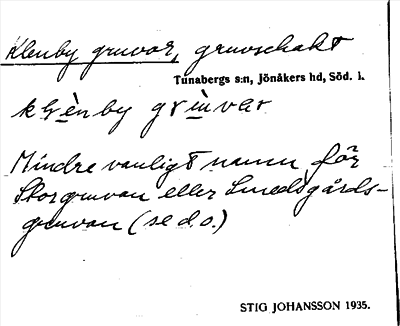 Klenby gruvor, gruvschakt
Tunabergs s:n, Jönåkers hd, Söd. l.
klènby grùvar
Mindre vanligt namn för
Storgruvan eller Smedsgårds-
gruvan (se d.o.)
STIG JOHANSSON 1935.